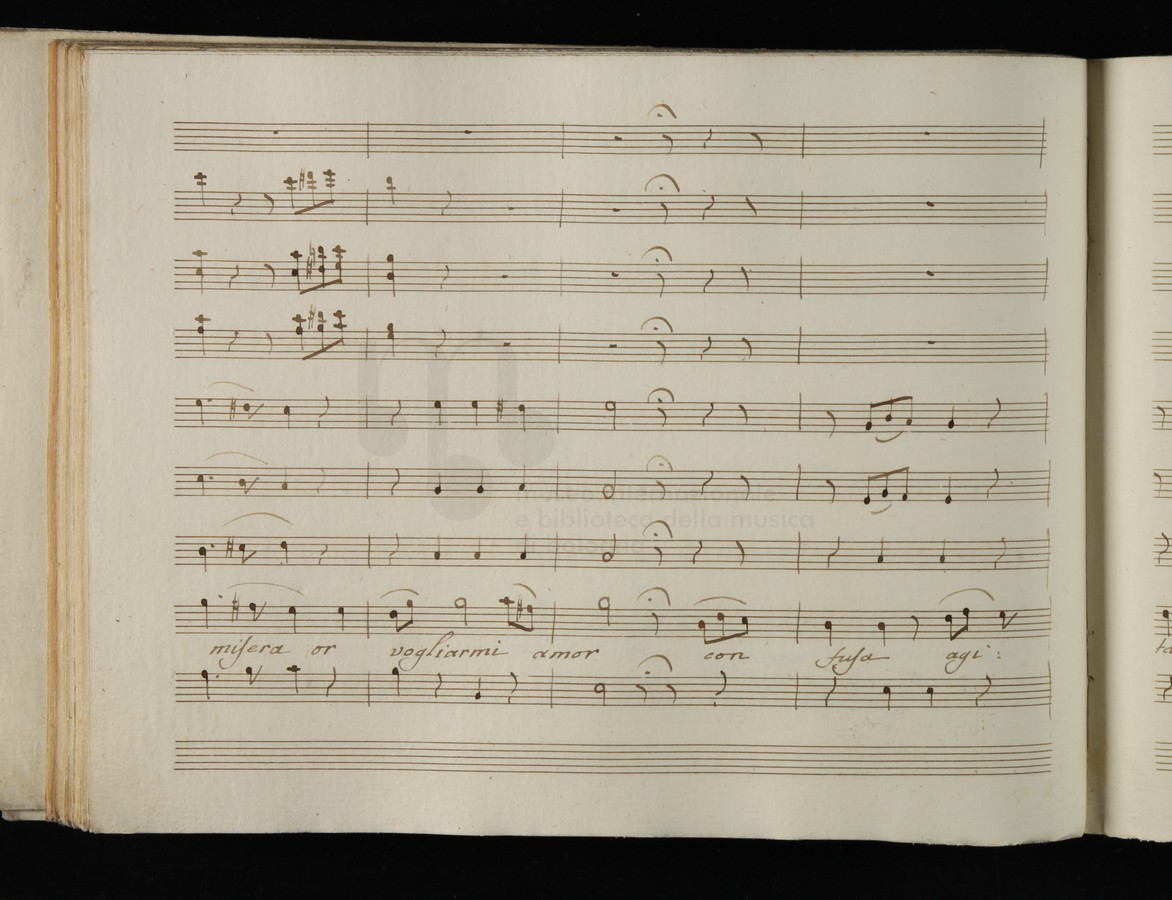 museo internazionale
e biblioteca della musica
misera or vogliarmi amor con fusa agi :